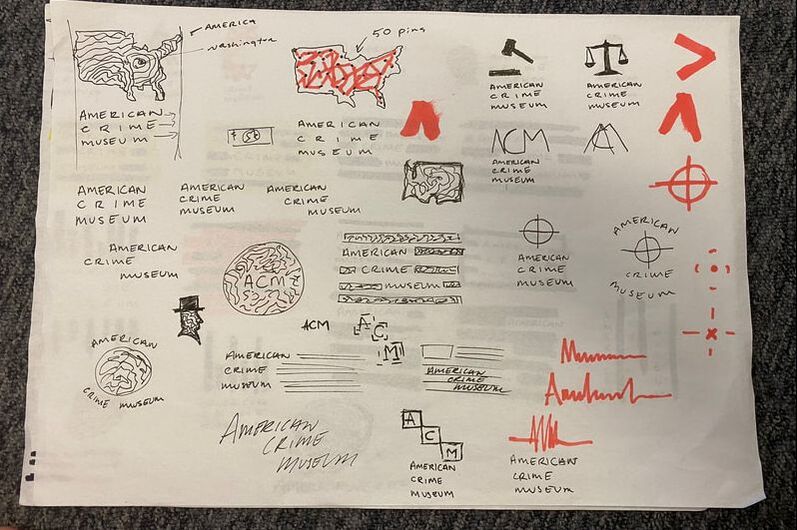 AMERICA
WASHINGTON
AMERICAN
CRIME
MUSEUM
50 pins
AMERICAN
CRIME
MUSEUM
AMERICAN
CRIME
MUSEUM
AMERICAN
CRIME
MUSEUM
ACM
AMERICAN
CRIME
MUSEUM
AMERICAN
CRIME
MUSEUM
AMERICAN
CRIME
MUSEUM
AMERICAN
CRIME
MUSEUM
AMERICAN
CRIME
MUSEUM
ACM
AMERICAN
CRIME
MUSEUM
AMERICAN
CRIME
MUSEUM
AMERICAN
CRIME
MUSEUM
ACM
A
C
M
AMERICAN
CRIME MUSEUM
AMERICAN
CRIME
MUSEUM
AMERICAN
CRIME
MUSEUM
AMERICAN
CRIME
MUSEUM
A
C
M
AMERICAN
CRIME
MUSEUM
AMERICAN
CRIME
MUSEUM